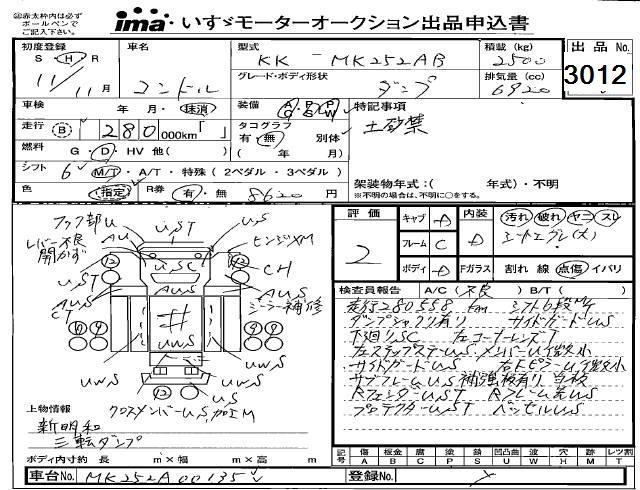 ㊟赤太枠内は必ず
ボールペンで
ご記入下さい。
ima・いすゞモーターオークション出品申込書
初度登録 車名 型式 積載 (kg) 出品No.
S・H・R コンドル KK-MK252AB 2500
11/11月 グレード・ボディ形状 ダンプ 排気量 (cc) 6920 3012
車検 年 月・抹消 装備 AC PS PW 特記事項
走行 B 280 000km「 」 タコグラフ 有・無 別体 土砂禁
燃料 G・D・HV 他( ) ( 年 月)
シフト 6 M/T・A/T・特殊(2ペダル・3ペダル) 架装物年式:( 年式)・不明
色 (指定) R券 有・無 8620円 ※不明の場合は、不明に○をする。
フック部U UST US
レバー不良 AU USC ヒンジXM
開かず
UST AUS CH
AUS シーラー補修
CS
UWS
上物情報 クロスメンバーUS,加工M
新明和
三転ダンプ
ボディ内寸約 長 m×幅 m×高 m
評価 2
キャブ A 内装 D 汚れ 破れ ヤニ スレ
フレーム C シートエグレ(大)
ボディ A Fガラス 割れ 線 点傷 イバリ
検査員報告 A/C(不良) B/T( )
走行280558km シフト6段MT
ダンプシャクリ有り サイドガードUS
下廻りSC 左コーナーレンズT
左ステップステーUS メンバーU微数小
サイドガードUS 右ドピラーU微数小
サブフレームUS 補強板有り 当板
RフェンダーUST Rフレーム先US
プロテクターUST ベッセルUS
記号 傷 板金 腐 塗 錆 凹 凸凹曲 波 穴 跡 レツ割
A B C P S U W H M T
車台No. MK252A00135 登録No.